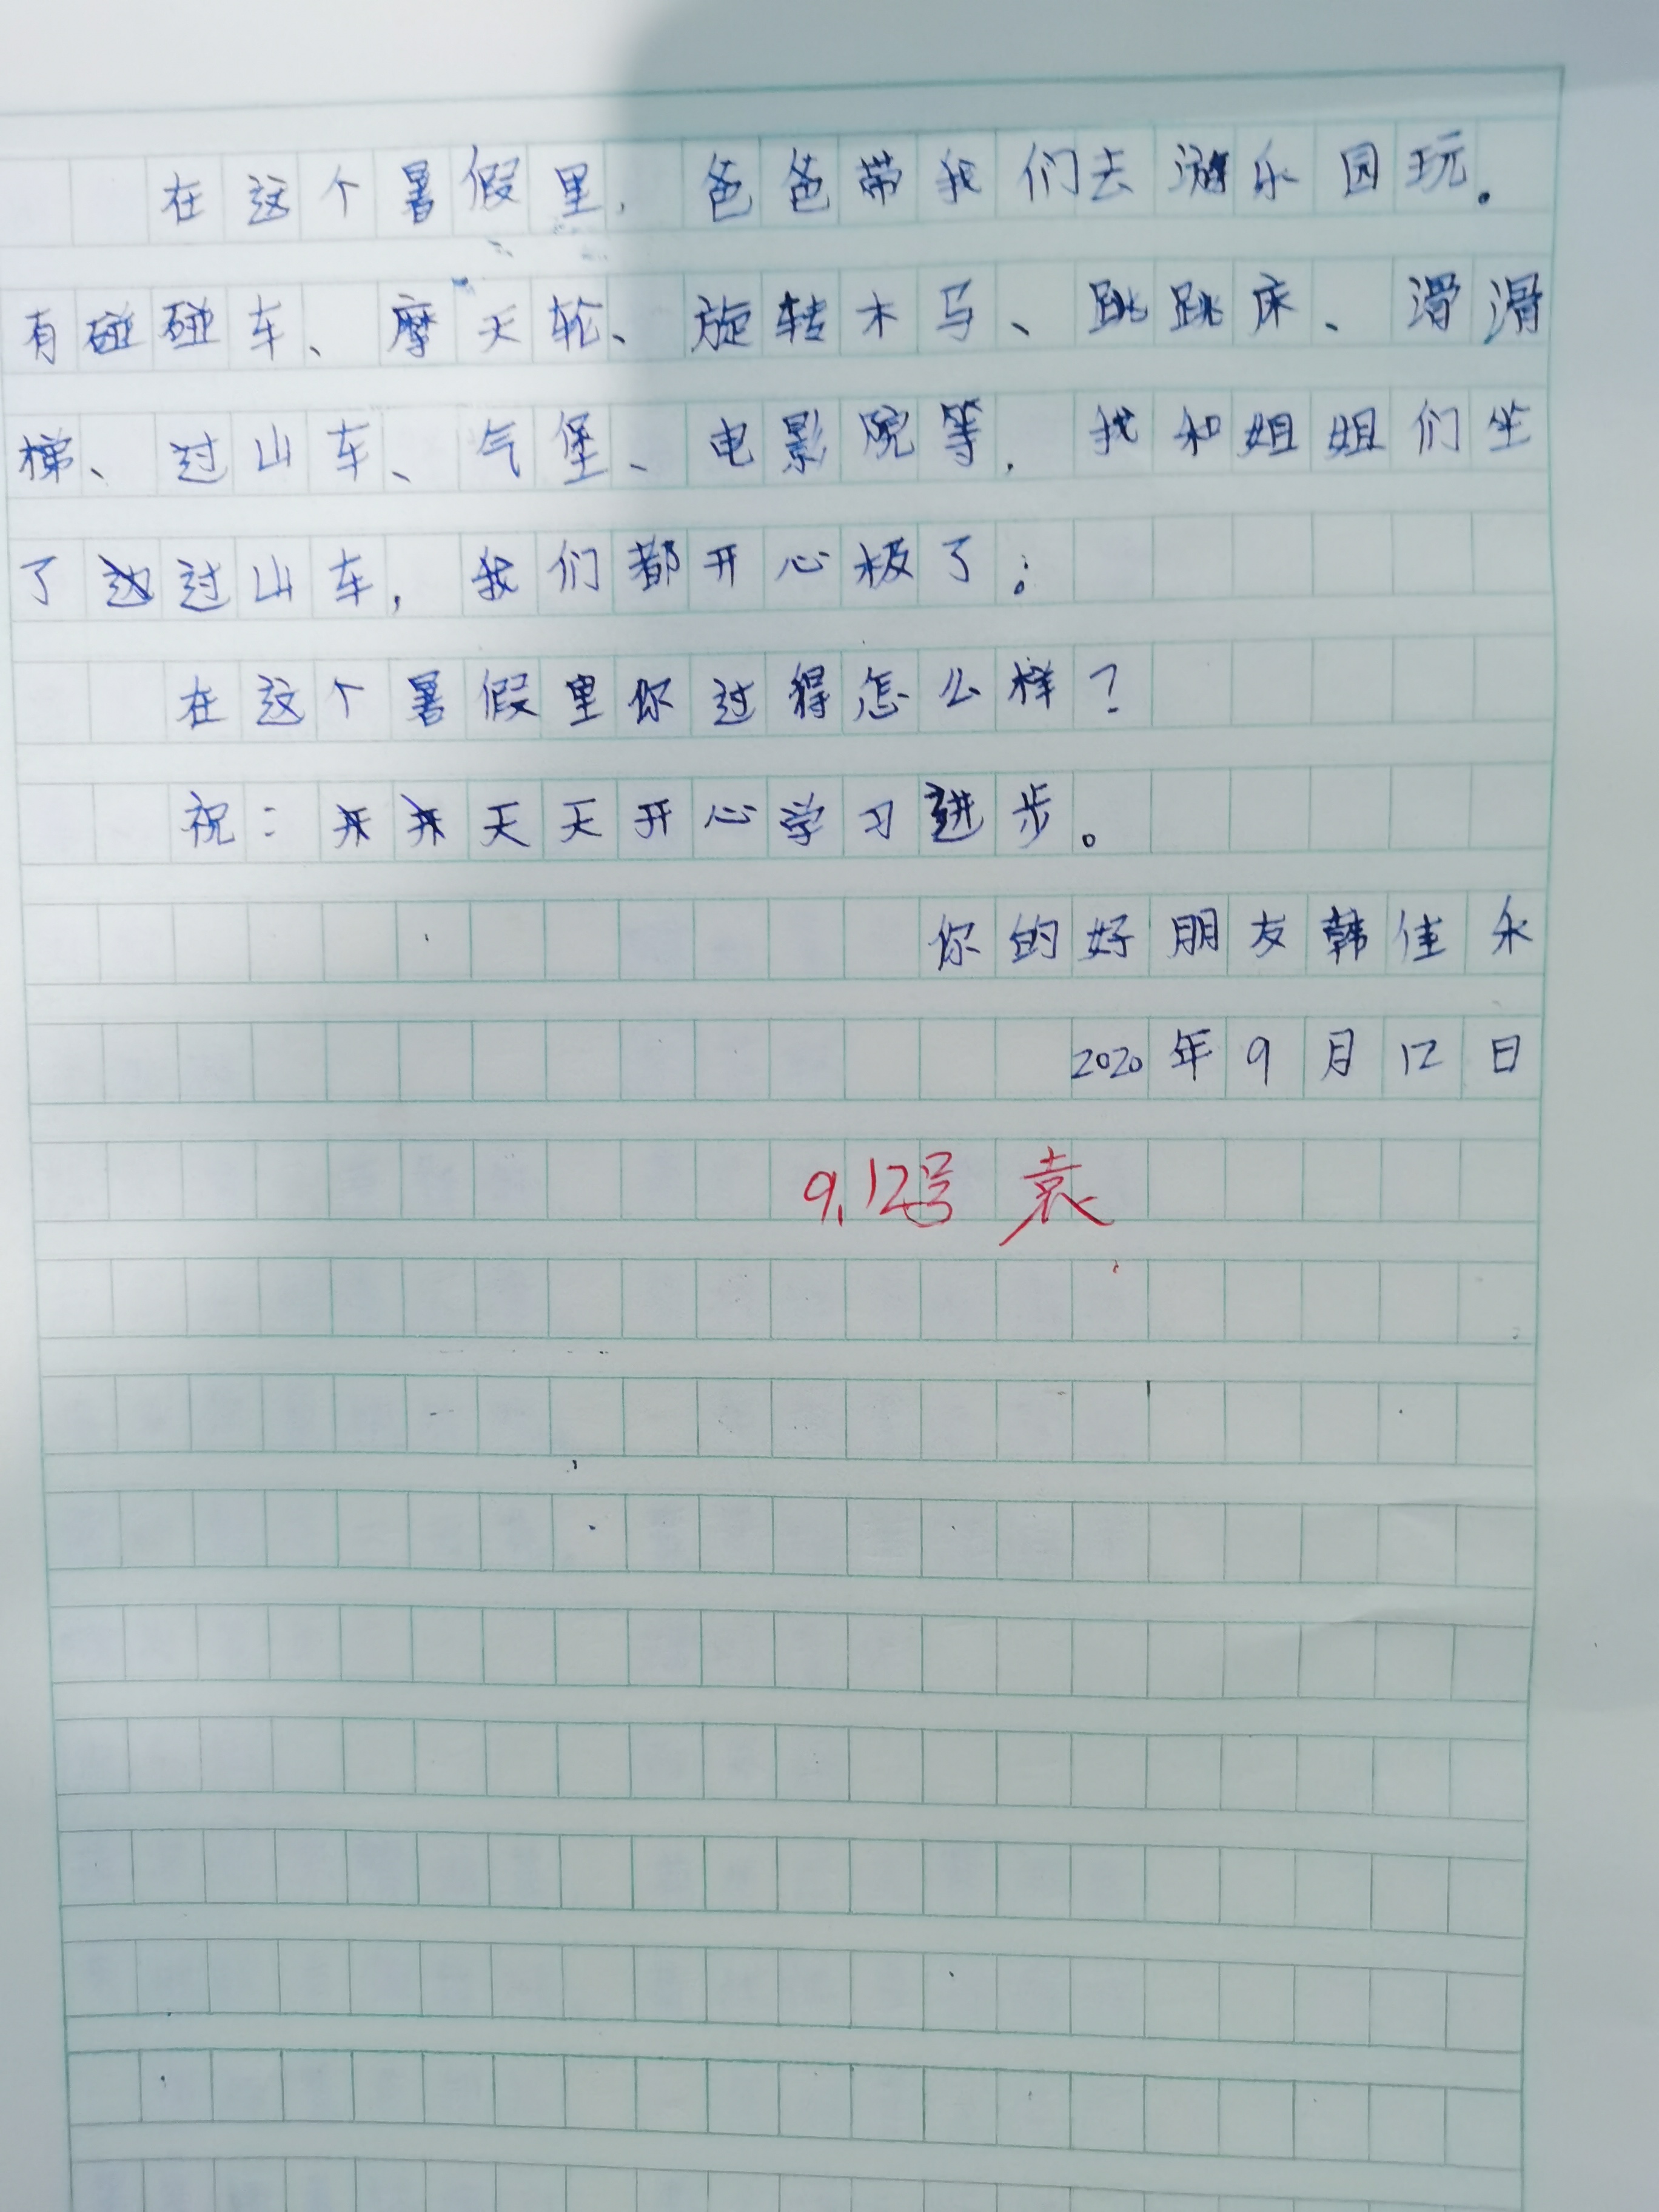 在这个暑假里，爸爸带我们去游乐园玩。
有碰碰车、摩天轮、旋转木马、跳跳床、滑滑
梯、过山车、气堡、电影院等，我和姐姐们坐
了过山车，我们都开心极了；
在这个暑假里你过得怎么样？
祝：天天开心学习进步。
你的好朋友韩佳永
2020年9月12日
9.12号 袁